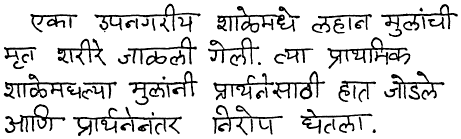 एका उपनगरीय शाळेमधे लहान मुलांची
मृत शरीरे जाळली गेली. त्या प्राथमिक
शाळेमधल्या मुलांनी प्रार्थनेसाठी हात जोडले
आणि प्रार्थनेनंतर निरोप घेतला.